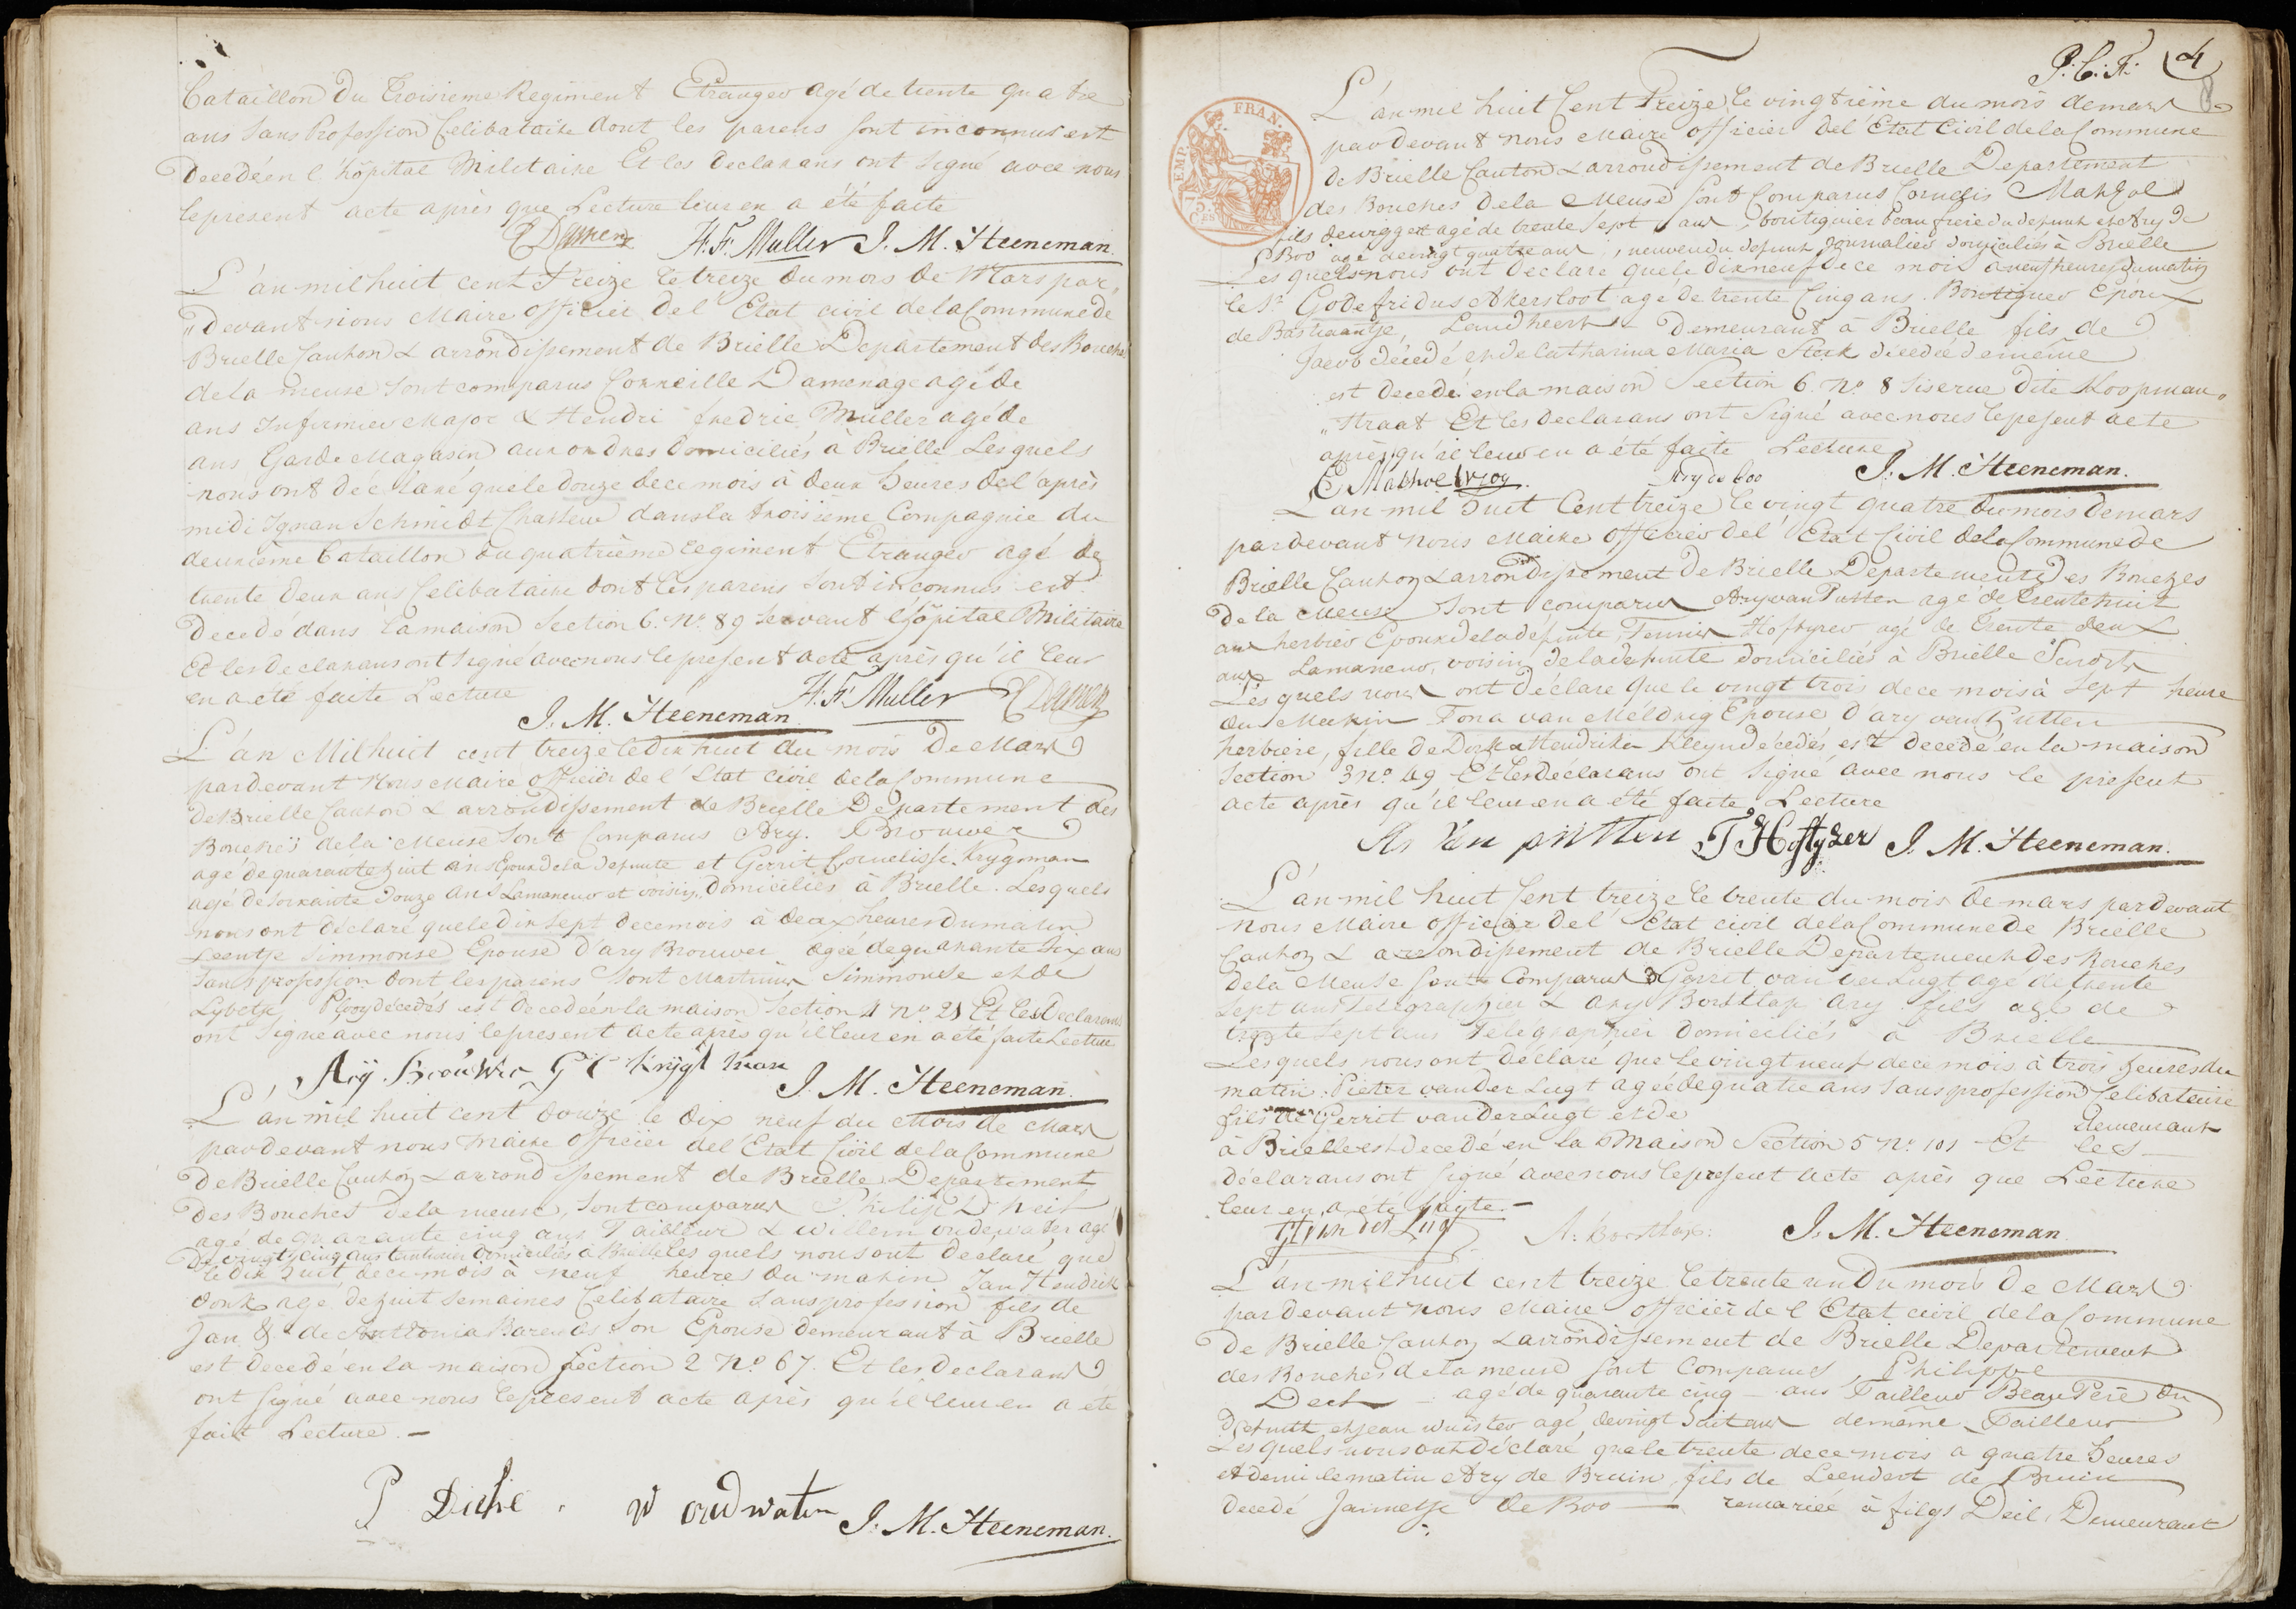 Bataillon du Troisieme Regiment Etranger agé de trente quatre
ans sans Profession Celibataire dont les parens sont inconnus est
Decedé en l'hôpital Militaire Et les declarans ont signé avec nous
le present acte après que Lecture leur en a été faite
C Damen H. F. Muller J. M. Heeneman.
L'an mil huit cent Treize le treize du mois de Mars par,,
,,devant nous Maire officier del' Etat civil dela Commune de
Brielle Canton & arrondissement de Brielle Departement des Bouches
de la meuse sont comparus Corneille Damenage agé de
ans Infirmier Major & Hendri fredric Muller agé de
ans Garde Magasin aux ordres domiciliés à Brielle Lesquels
nous ont declaré que le douze de ce mois à deux heures del' après
midi Ignan Schmidt Chasseur dans la troisième Compagnie du
deuxieme bataillon du quatrième regiment Etranger agé de
trente deux ans Celibataire dont les parens sont inconnus est
Decedé dans la maison Section 6. No. 89 servant l'hôpital Militaire
Et les declarans ont signé avec nous le present acte après qu'il leur
en a été faite Lecture H. F. Muller C Damen
J. M. Heeneman
L'an Mil huit cent treize le dix huit du mois De Mars
pardevant Nous Maire officier de l' Etat Civil de la Commune
de Brielle Canton & arrondissement de Brielle Departement des
Bouches de la Meuse Sont Comparus Ary. Brouwer
agé de quarante huit ans Epoux de la defunte et Gerrit Cornelisse Krygsman
agé de soixante Douze ans Lamaneur et voisin, domiciliés à Brielle. Lesquels
nous ont déclaré que le dix sept de ce mois à deux heures du matin
Leentje Simmonse Epouse d'ary Brouwer agée de quarante six ans
sans profession dont les parens sont Martinus Simmonse et de
Lybetje Plooy décedés est decedé en la maison Section 4 No. 21 Et les Declarans
ont signé avec nous le present acte après qu'il leur en a été faite Lecture
Arij. Brouwer G C Krijgsman J. M. Heeneman.
L'an mil huit cent douze le dix neuf du Mois de Mars
pardevant nous Maire officier del' Etat Civil de la Commune
De Brielle Canton & arrondissement de Brielle Departement
Des Bouches de la meuse, sont comparus
agé de quarante cinq ans Tailleur & Willem oudewater agé
De vingt cinq ans domiciliés à Brielle les quels nous ont declaré que
le dix huit de ce mois à neuf heures du matin Jan Hendrik
Donk agé de huit semaines Celibataire sans profession fils de
Jan & de Anthonia Barends son Epouse demeurant à Brielle
est decedé en la maison Section 2 No. 67. Et les declarans
ont signé avec nous le present acte après qu'il leur en a été
fait Lecture. —
P W oudwater J. M. Heeneman.
P. C. F. 4
8
EMP. FRAN.
75
L'an mil huit Cent Treize, le vingtième du mois de mars
pardevant nous Maire officier del' Etat Civil de la Commune
de Brielle Canton & arrondissement de Brielle Departement
des Bouches De la Meuse Sont Comparus Cornelis Makhoel
agé de trente sept ans, boutiquier beau frere du defunt et Ary de
Boo agé de vingt quatre ans, neuveu du defunt Journalier domiciliés à Brielle
Les quels nous ont declaré que le dix neuf de ce mois à neuf heures du matin
le Sr. Godefridus Akersloot agé de trente Cinq ans. Boutiquer Epoux
de Bastiaantje, Landheer Demeurant à Brielle fils de
Jacob décedé et de Catharina Maria Sterk décedée de même
est decedé en la maison Section 6. No. 8 sise rue dite Koopman,,
,,straat Et les declarans ont signé avec nous le present acte
après qu'il leur en a été faite Lecture
C Makhoel Ary de boo J. M. Heeneman.
L'an mil huit Cent treize le vingt quatre du mois de mars
pardevant nous Maire officier del' Etat Civil de la Commune de
Brielle Canton & arrondissement De Brielle Departement des Bouches
De la Meuse Sont comparus Ary van Putten agé de trente huit
ans herbier Epoux de la défunte, Teunis Hoftyzer agé de trente deux
ans Lamaneur, voisin de la defunte domiciliés à Brielle
Les quels nous ont déclaré que le vingt trois de ce mois à sept heure
du Matin Tona van Méldrig Epouse d'ary van Putten
herbiere, fille de Dirk & Hendrika Kleyn décedés est decedé en la maison
Section 3 No. 49 Et les déclarans ont signé avec nous le present
acte après qu'il leur en a été faite Lecture
Ar van putten T Hoftyzer J. M. Heeneman.
L'an mil huit Cent treize le trente du mois de mars pardevant
nous Maire officier del' Etat civil de la Commune de Brielle
Canton & arrondissement de Brielle Departement des Bouches
De la Meuse Sont Comparus Gerrit van der Lugt agé de trente
sept ans Telegraphier & Ary Borstlap Ary fils agé de
trente sept ans Telegraphier domiciliés à Brielle
Lesquels nous ont déclaré que le vingt neuf de ce mois à trois heures du
matin. Pieter van der Lugt agé de quatre ans sans profession Celibataire
fils de Gerrit van der Lugt et de Demeurant
à Brielle est decedé en la Maison Section 5 No. 101 Et les
déclarans ont signé avec nous le present acte après que Lecture
leur en a été faite. —
G van der Lugt A: Borstlap: J. M. Heeneman
L'an mil huit cent treize le trente un Du mois de Mars
pardevant nous Maire officier de l' Etat civil de la Commune
De Brielle Canton & arrondissement de Brielle Departement
des Bouches de la meuse sont Comparus, Philippe
agé de quarante cinq — ans Tailleur Beau Père du
Defunt et Jean agé de vingt huit ans de même Tailleur
Les quels nous ont déclaré que le trente de ce mois a quatre heures
et demi le matin Ary de Bruin, fils de Leendert de Bruin
decedé Jannetje de Boo — remariée à Deil, Demeurant